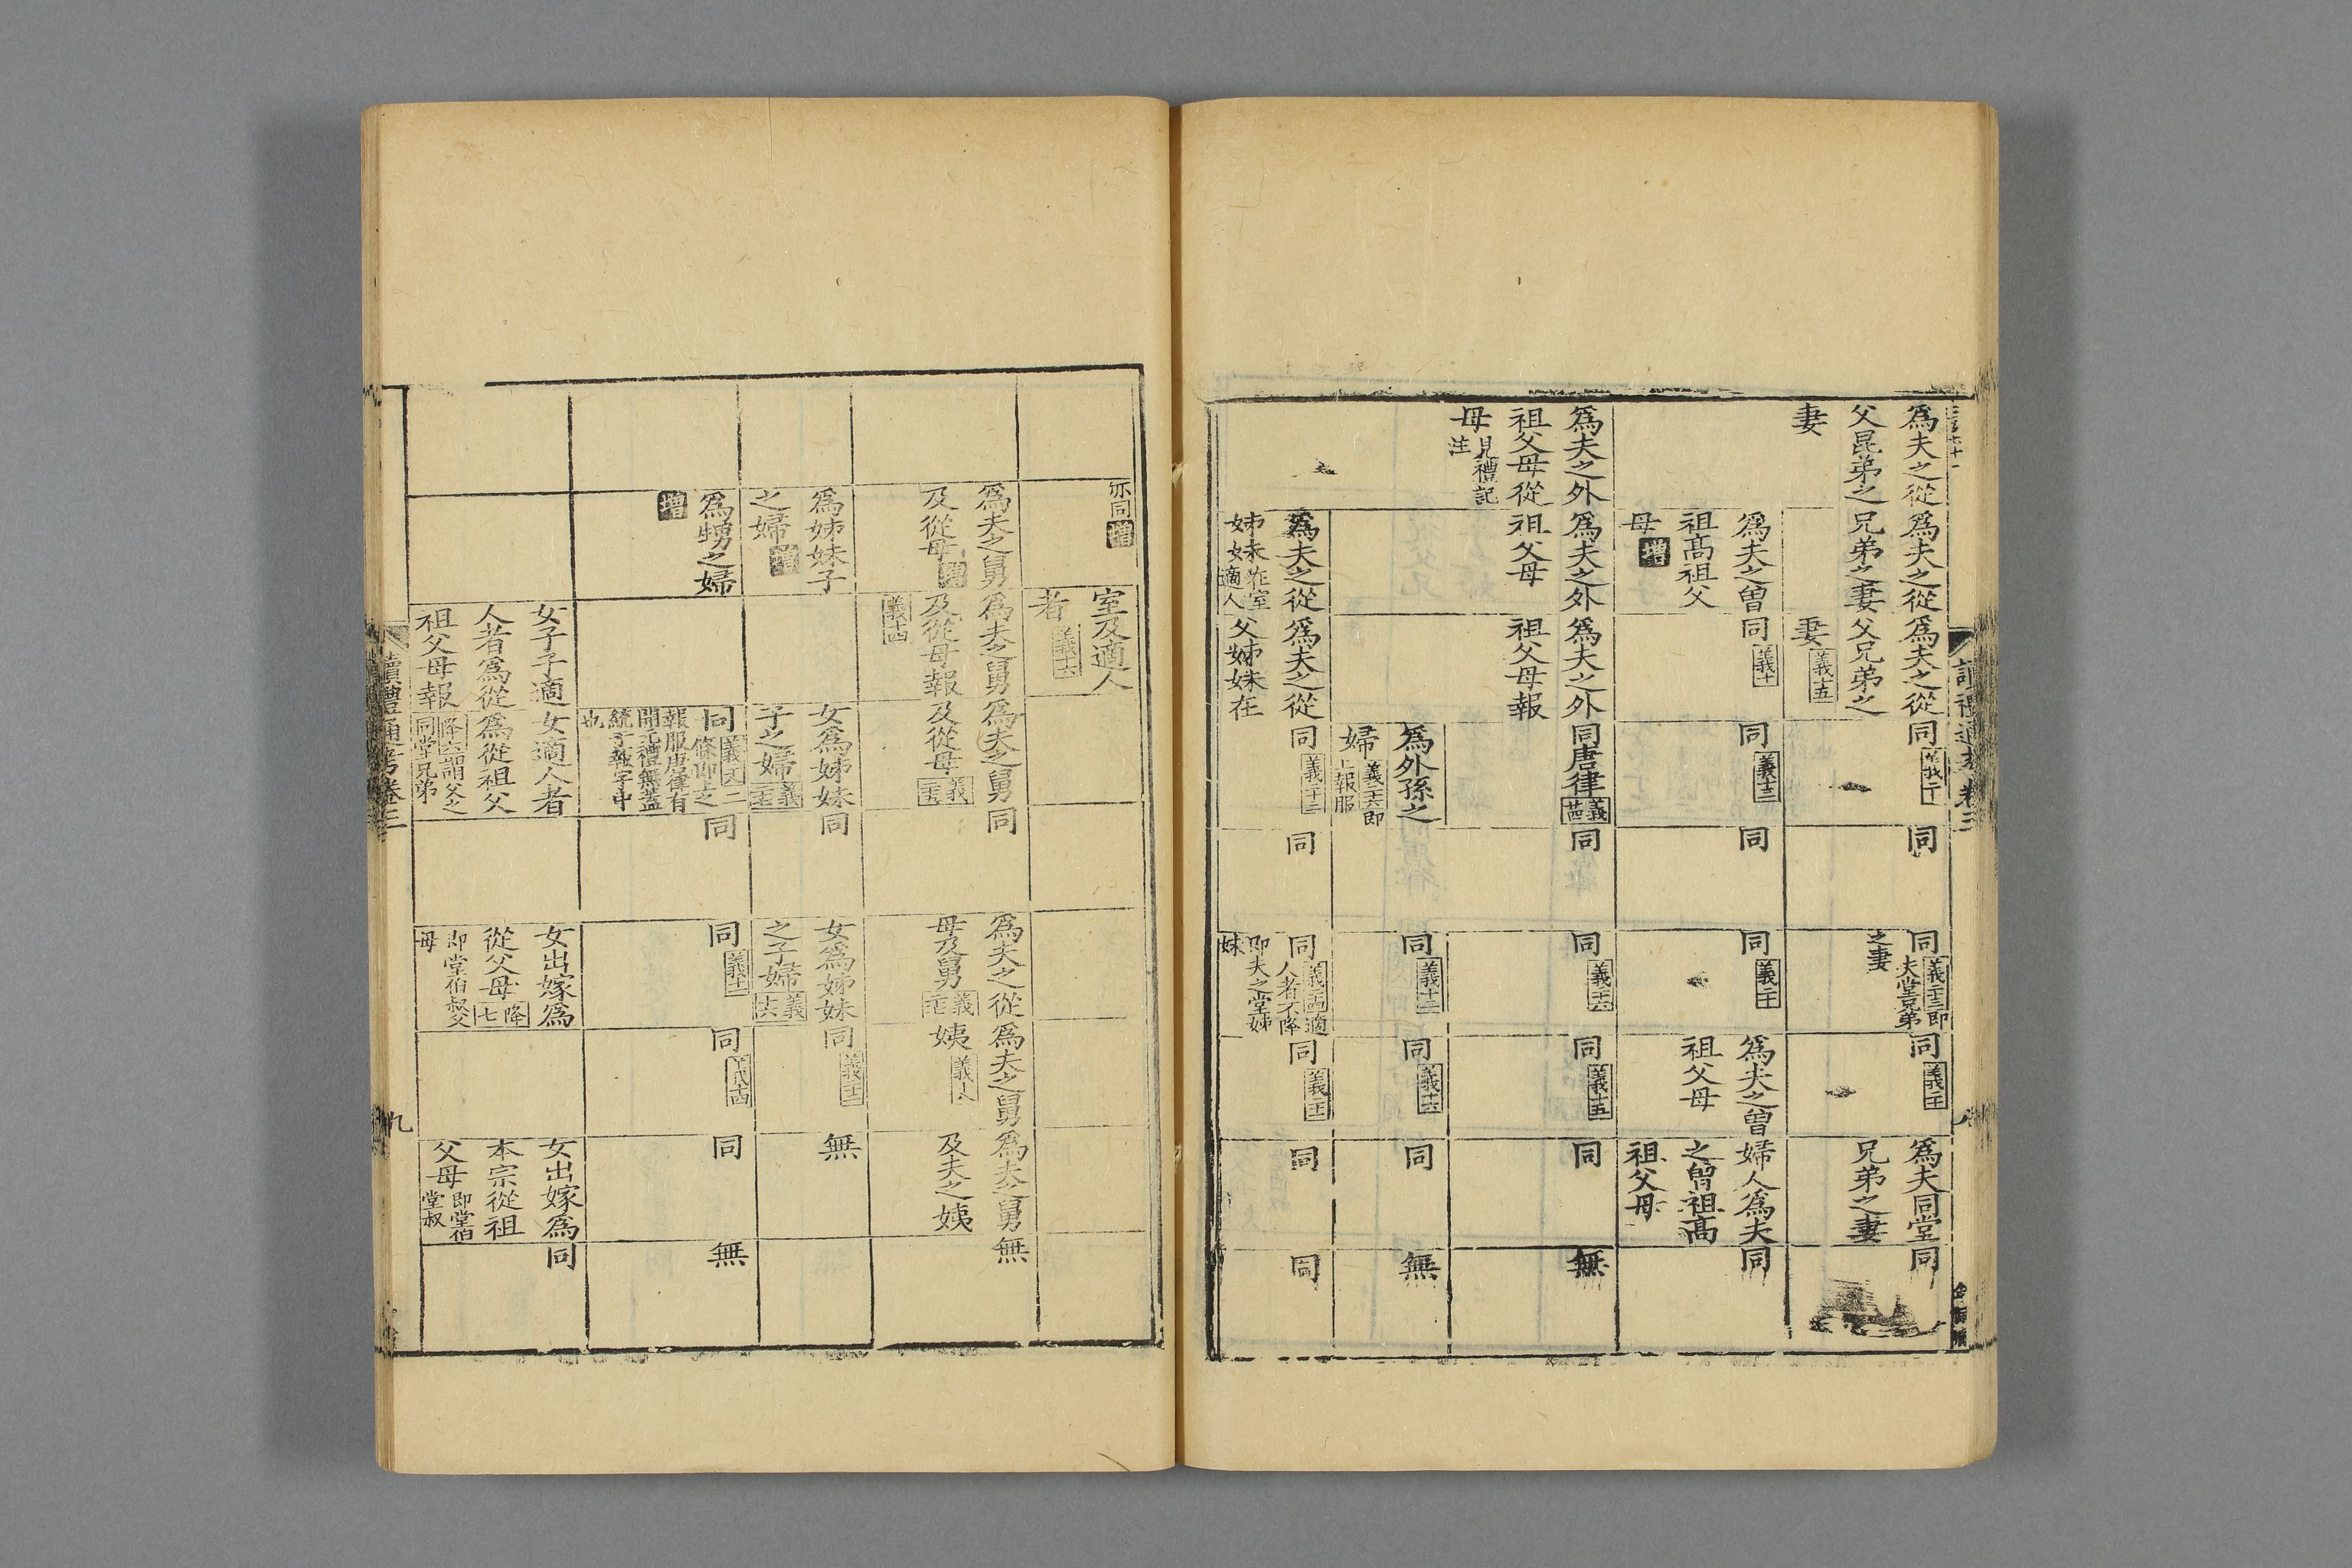 讀禮通考卷三
八
爲夫之從
父昆弟之
妻
爲夫之從
兄弟之妻
爲夫之從
父兄弟之
妻義十五
同
同
同義二十三即
夫堂兄弟
之妻
同義二十
爲夫同堂
兄弟之妻
同
爲夫之曾
祖高祖父
母增
同義十
同義十三
同
同義二十
爲夫之曾
祖父母
婦人爲夫
之曾祖高
祖父母
同
爲夫之外
祖父母從
母見禮記
注
爲夫之外
祖父母
爲夫之外
祖父母報
同唐律義二十四
同
同義二十六
同義十五
同
無
爲外孫之
婦義三十六即
上報服
同義十二
同義十六
同
無
爲夫之從
姊妹在室
適人
爲夫之從
父姊妹在
同義二十二
同
同義二十四適
人者不降
即夫之堂姊
妹
同義二十一
同
同
亦同增
室及適人
者義十六
爲夫之舅
及從母增
爲夫之舅
及從母報
義十四
爲夫之舅
及從母義二十五
同
爲夫之從
母及舅義二十七
爲夫之舅
姨義十八
爲夫之舅
及夫之姨
無
爲姊妹子
之婦增
女爲姊妹
子之婦義二十七
同
女爲姊妹
之子婦義十六
同義二十二
無
爲甥之婦
增
同義二十八二
條即上之
報服唐律有
開元禮無蓋
統于報字中
也
同
同義十一
同義十四
同
無
女子子適
人者爲從
祖父母報
女適人者
爲從祖父
降六謂父之
同堂兄弟
女出嫁爲
從父母降七
即堂伯叔父
母
女出嫁爲
本宗從祖
父母即堂伯
堂叔
同
讀禮通考卷三
九